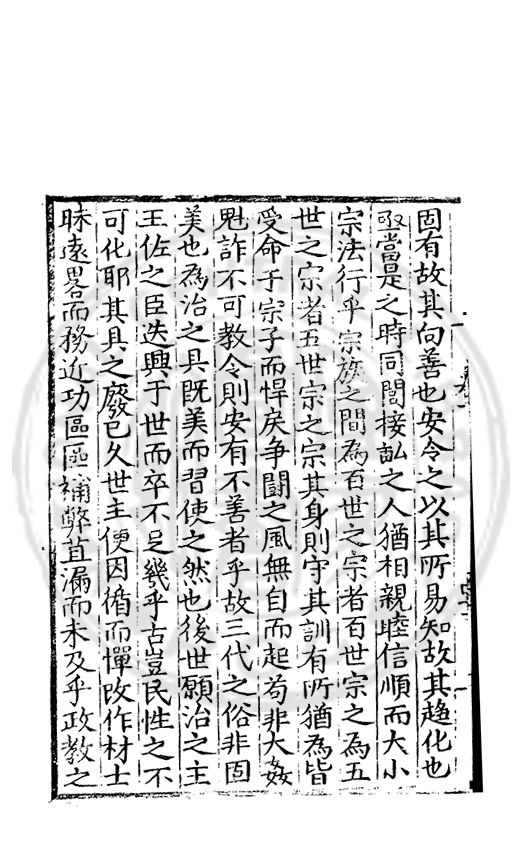 固有故其向善也安令之以其所易知故其趨化也
亟當是之時同閭接畆之人猶相親睦信順而大小
宗法行乎宗族之間為百世之宗者百世宗之為五
世之宗者五世宗之宗其身則守其訓有所猶為皆
受命于宗子而悍戾争鬪之風無自而起苟非大姦
魁詐不可教令則安有不善者乎故三代之俗非固
美也為治之具既美而習使之然也後世願治之主
王佐之臣迭興于世而卒不足幾乎古豈民性之不
可化耶其具之廢已久世主便因循而憚改作材士
昧遠畧而務近功區區補弊苴漏而未及乎政教之